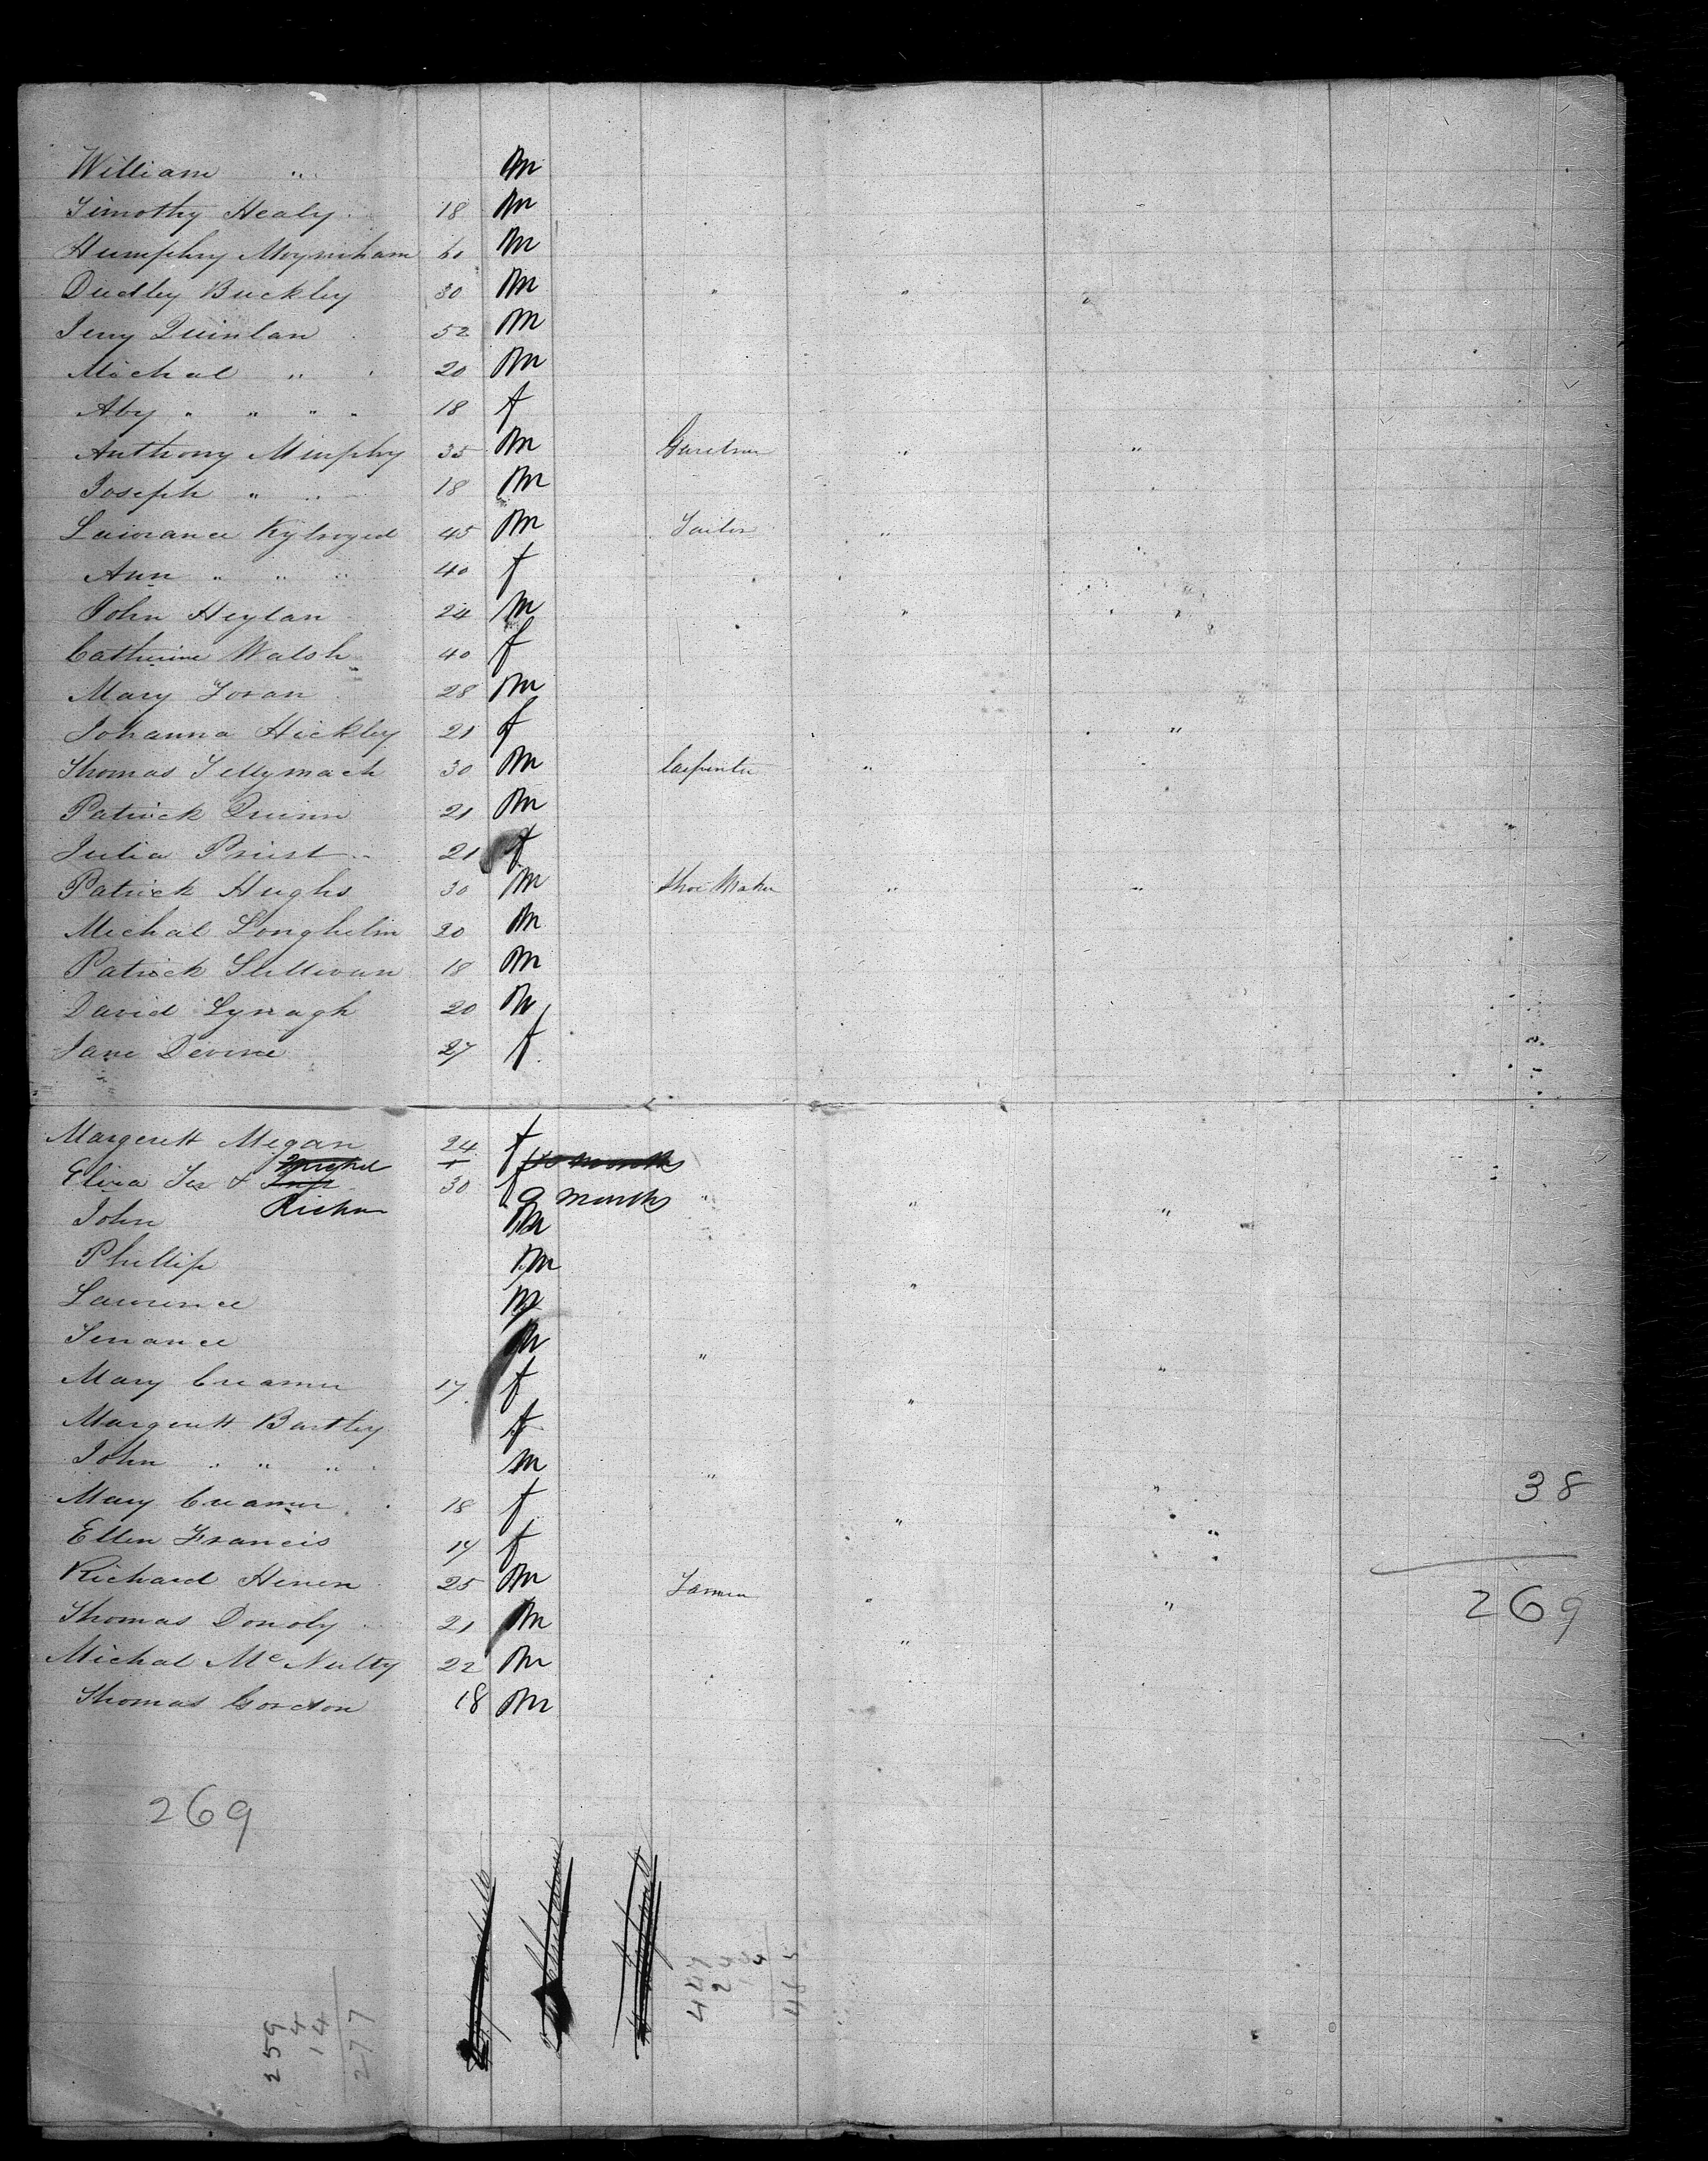 William " m
Timothy Healy 18 m
Humphry Moyniham 61 m
Dudley Buckley 30 m " " "
Jerry Quinlan 52 m
Michal " 20 m
Aby " " " " 18 f
Anthony Murphy 35 m Gardner " "
Joseph " " 18 m
Lawrance Kylroyed 45 m Tailor "
Ann " " " 40 f
John Heylan 24 m "
Catherine Walsh 40 f
Mary Foran 28 m
Johanna Hickley 21 f "
Thomas Tellymach 30 m Carpenter "
Patrick Quinn 21 m
Julia Priest 21 f
Patrick Hughs 30 m Shoe Maker " "
Michal Longhelin 20 m
Patrick Sullivan 18 m
David Lynagh 20 m
Jane Devine 27 f
Margerett Megan 24 f
Eliza & 30 f 9 months " " "
John m
Phillip m
Lawrence m "
Tenance m " "
Mary Creamer 17 f "
Margerett Bartley f
John " " " m "
Mary Creamer 18 f " " 38
Ellen Francis 14 f "
Richard Heven 25 m Farmer " " 269
Thomas Donoly 21 m "
Michal Mc Nulty 22 m
Thomas Gordon 18 m
269
259
4
14
277